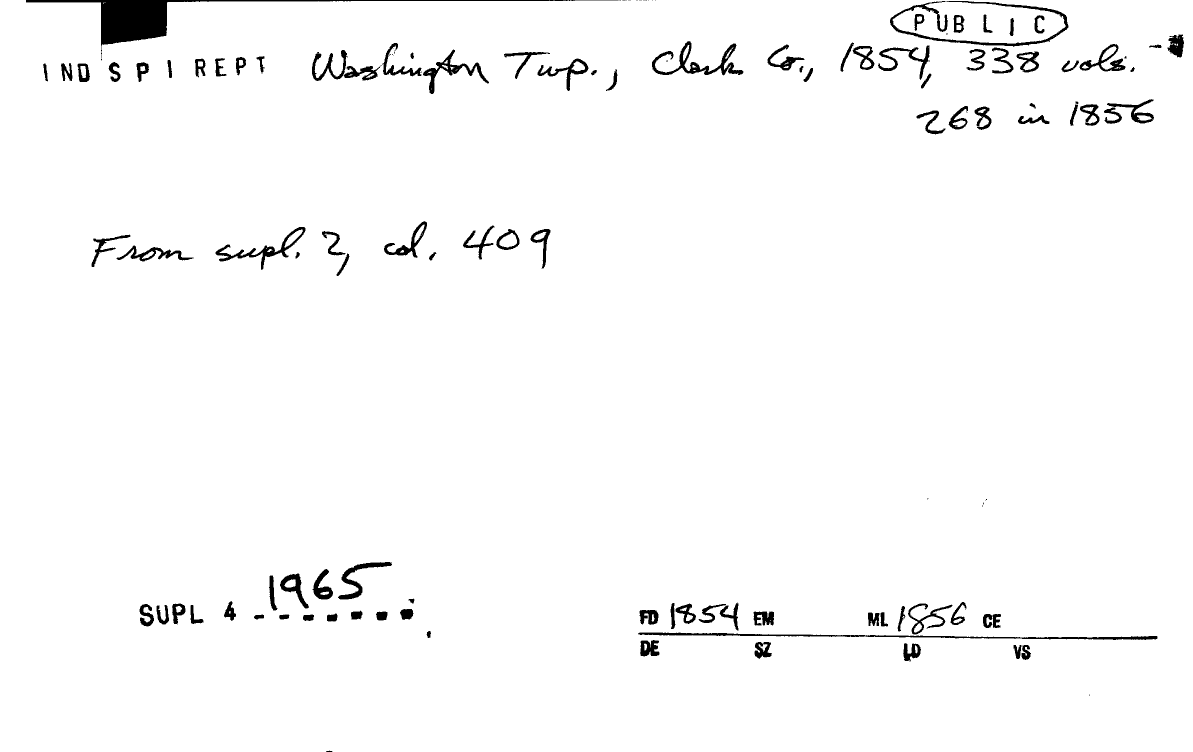 PUBLIC
IND SPI REPT Washington Twp., Clark Co., 1854, 338 vols. -
268 in 1856
From supl. 2, col. 409
SUPL 4 1965
FD 1854 EM ML 1856 CE
DE SZ LD VS